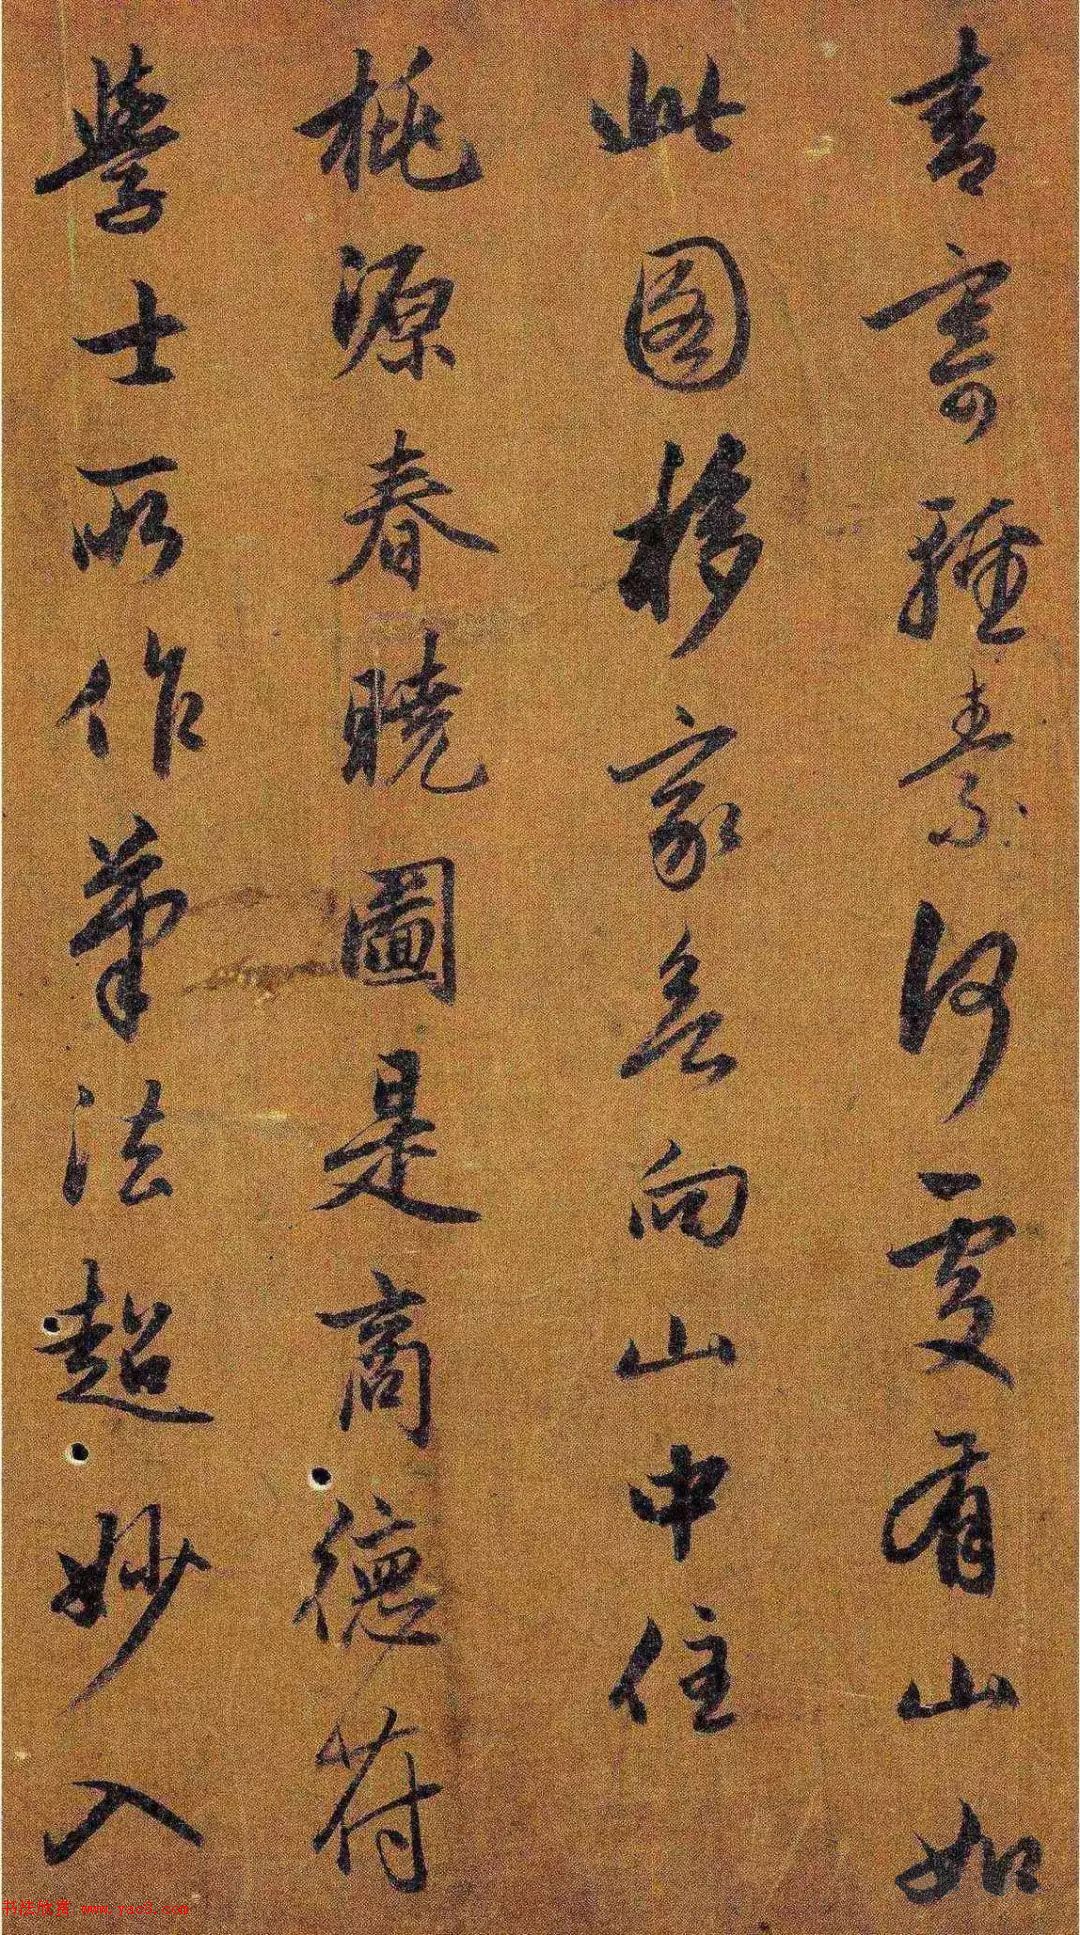 青寄輕素何處有山如
此圖移家向山中住
桃源春曉圖是商德符
學士所作筆法超妙入
书法欣赏 www.yac8.com